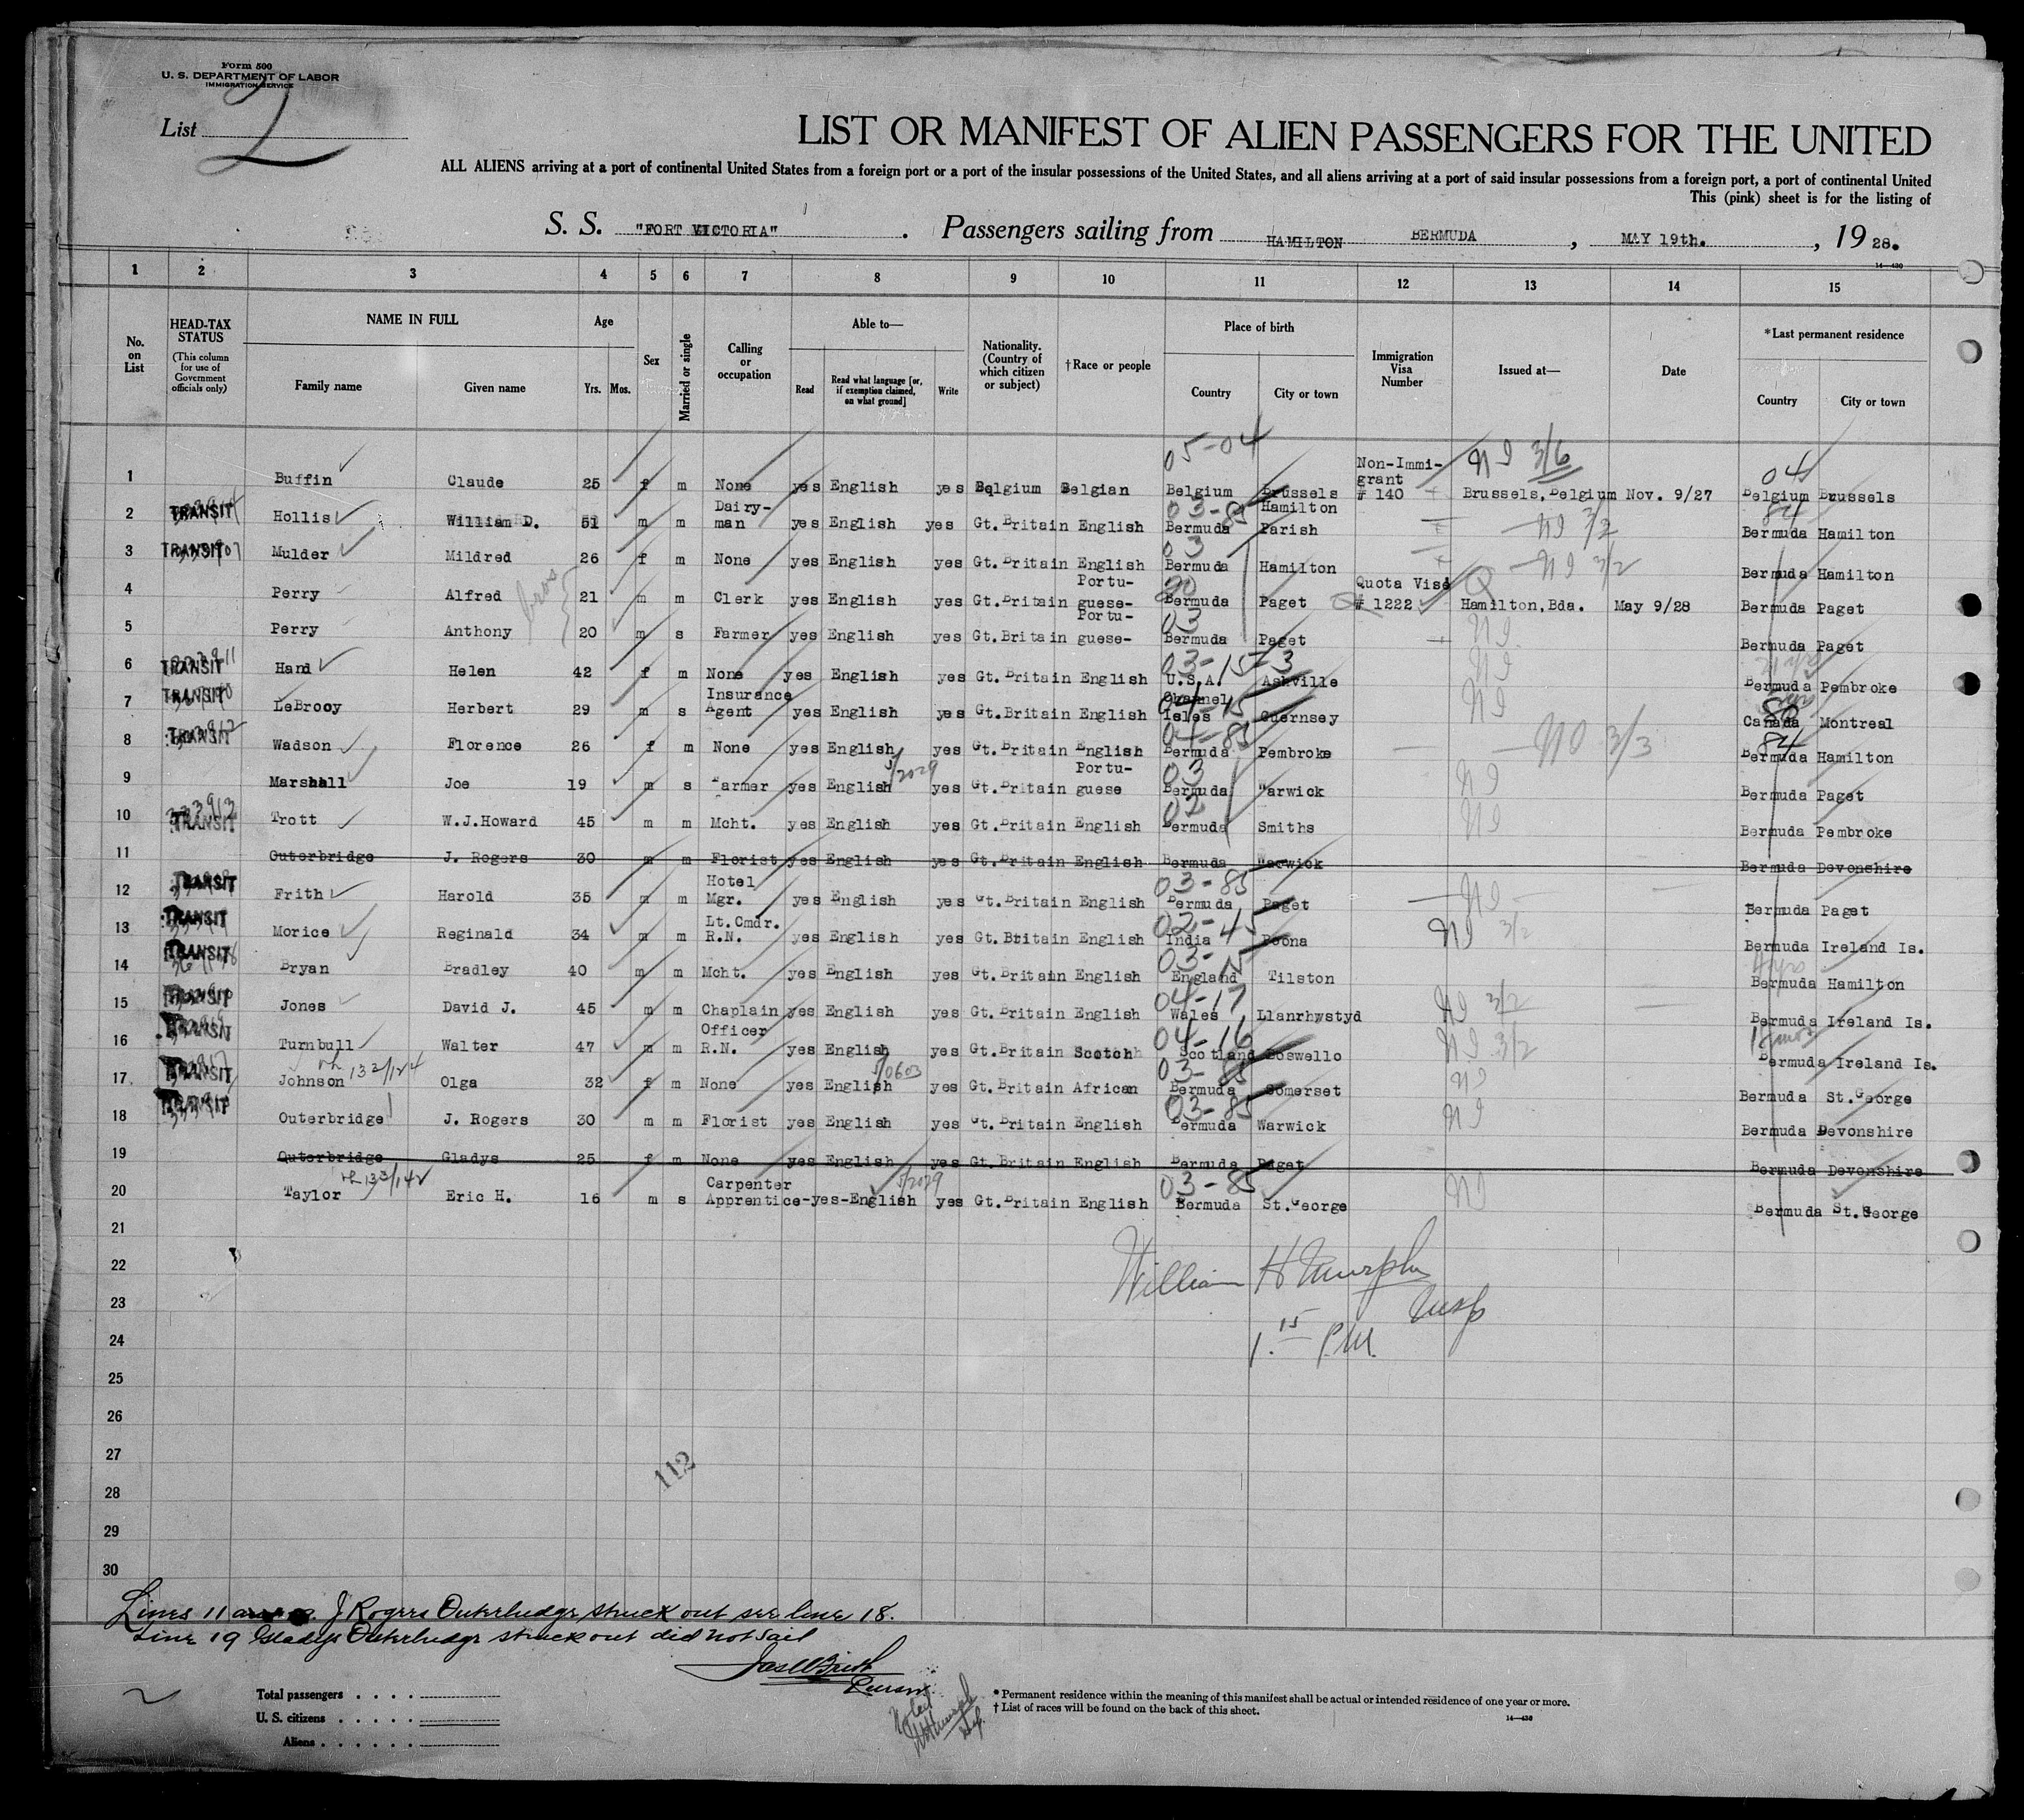 Form 500
U. S. DEPARTMENT OF LABOR
IMMIGRATION SERVICE
List 2
LIST OR MANIFEST OF ALIEN PASSENGERS FOR THE UNITED
ALL ALIENS arriving at a port of continental United States from a foreign port or a port of the insular possessions of the United States, and all aliens arriving at a port of said insular possessions from a foreign port, a port of continental United
This (pink) sheet is for the listing of
S. S. "FORT VICTORIA" . Passengers sailing from HAMILTON BERMUDA , MAY 19th. , 19 28.
14—430
1 2 3 4 5 6 7 8 9 10 11 12 13 14 15
No. on List
HEAD-TAX STATUS (This column for use of Government officials only)
NAME IN FULL Family name Given name
Age Yrs. Mos.
Sex
Married or single
Calling or occupation
Able to— Read Read what language [or, if exemption claimed, on what ground] Write
Nationality. (Country of which citizen or subject)
†Race or people
Place of birth Country City or town
Immigration Visa Number
Issued at—
Date
*Last permanent residence Country City or town
05-04 NI 3/6 04
1 Buffin Claude 25 f m None yes English yes Belgium Belgian Belgium Brussels Non-Immigrant # 140 Brussels, Belgium Nov. 9/27 Belgium Brussels
2 TRANSIT Hollis William D. 51 m m Dairy-man yes English yes Gt. Britain English 03-85 Bermuda Hamilton Parish NI 3/2 84 Bermuda Hamilton
3 TRANSIT Mulder Mildred 26 f m None yes English yes Gt. Britain English 03 Bermuda Hamilton NI 3/2 Bermuda Hamilton
4 Perry Alfred bros 21 m m Clerk yes English yes Gt. Britain Portu-guese- Bermuda Paget Quota Visé # 1222 Q Hamilton, Bda. May 9/28 Bermuda Paget
5 Perry Anthony 20 m s Farmer yes English yes Gt. Britain Portu-guese- 03 Bermuda Paget NI Bermuda Paget
6 TRANSIT Hand Helen 42 f m None yes English yes Gt. Britain English 03-15-3 U.S.A. Ashville NI Bermuda Pembroke
7 TRANSIT LeBrocy Herbert 29 m s Insurance Agent yes English yes Gt. Britain English Channel Isles Guernsey NI Canada Montreal
8 TRANSIT Wadson Florence 26 f m None yes English yes Gt. Britain English 04-85 Bermuda Pembroke NO 3/3 84 Bermuda Hamilton
9 Marshall Joe 19 m s Farmer yes English 5/2029 yes Gt. Britain Portu-guese 03 Bermuda Warwick NI Bermuda Paget
10 333913 TRANSIT Trott W.J.Howard 45 m m Mcht. yes English yes Gt. Britain English Bermuda Smiths NI Bermuda Pembroke
11 Outerbridge J. Rogers 30 m m Florist yes English yes Gt. Britain English Bermuda Warwick Bermuda Devonshire
12 TRANSIT Frith Harold 35 m m Hotel Mgr. yes English yes Gt. Britain English 03-85 Bermuda Paget NI Bermuda Paget
13 TRANSIT Morice Reginald 34 m m Lt. Cmdr. R.N. yes English yes Gt. Britain English 02-45 India Poona NI 3/2 Bermuda Ireland Is.
14 TRANSIT Bryan Bradley 40 m m Mcht. yes English yes Gt. Britain English England Tilston Bermuda Hamilton
15 TRANSIT Jones David J. 45 m m Chaplain yes English yes Gt. Britain English 04-17 Wales Llanrhystyd NI 3/2 Bermuda Ireland Is.
16 TRANSIT Turnbull Walter 47 m m Officer R.N. yes English yes Gt. Britain Scotch 04-16 Scotland Boswello NI 3/2 Bermuda Ireland Is.
17 TRANSIT Johnson 132/124 Olga 32 f m None yes English yes Gt. Britain African 03-85 Bermuda Somerset NI Bermuda St. George
18 TRANSIT Outerbridge J. Rogers 30 m m Florist yes English yes Gt. Britain English 03-85 Bermuda Warwick NI Bermuda Devonshire
19 Outerbridge Gladys 25 f m None yes English yes Gt. Britain English Bermuda Paget Bermuda Devonshire
20 Taylor 133/142 Eric H. 16 m s Carpenter Apprentice-yes-English 5/2029 yes Gt. Britain English 03-85 Bermuda St. George NI Bermuda St. George
21
22
William H Murphy
23
Insp
24
1.15 P.M.
25
26
27
112
28
29
30
Lines 11 J Rogers Outerbridge struck out see line 18.
Line 19 Gladys Outerbridge struck out did not sail
Purser
Noted
Total passengers . . . .
U. S. citizens . . . . .
Aliens . . . . . .
* Permanent residence within the meaning of this manifest shall be actual or intended residence of one year or more.
† List of races will be found on the back of this sheet.
14—430